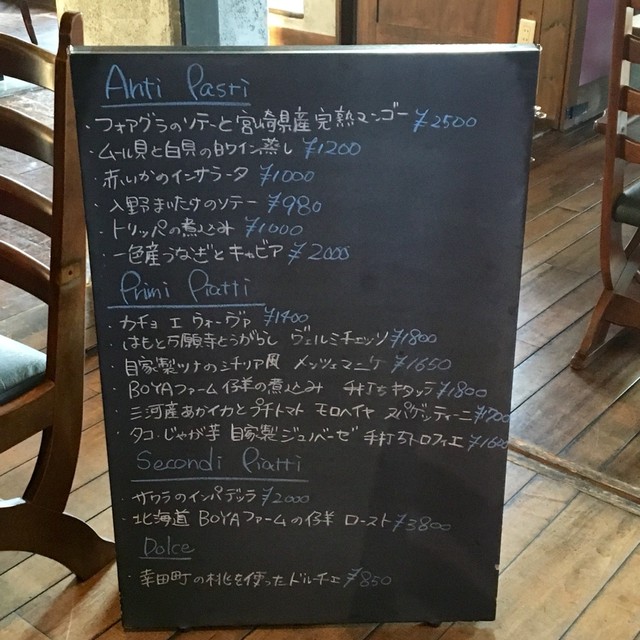 Anti Pasti
・フォアグラのソテーと宮崎県産完熟マンゴー ¥2500
・ムール貝と白貝の白ワイン蒸し ¥1200
・赤いかのインサラータ ¥1000
・入野まいたけのソテー ¥980
・トリッパの煮込み ¥1000
・一色産うなぎとキャビア ¥2000
Primi Piatti
・カチョ エ ウォーヴァ ¥1400
はもと万願寺とうがらし ヴェルミチェッリ ¥1800
・自家製ツナのシチリア風 メッツェマニケ ¥1650
・BOYAファーム仔羊の煮込み 手打ちキタッラ ¥1800
・三河産あかイカとプチトマト モロヘイヤ スパゲッティーニ
・タコ・じゃが芋 自家製ジェノベーゼ 手打ちトロフィエ ¥1600
Secondi Piatti
・サワラのインパデッラ ¥2000
・北海道 BOYAファームの仔羊 ロースト ¥3800
Dolce
・幸田町の桃を使ったドルチェ ¥850